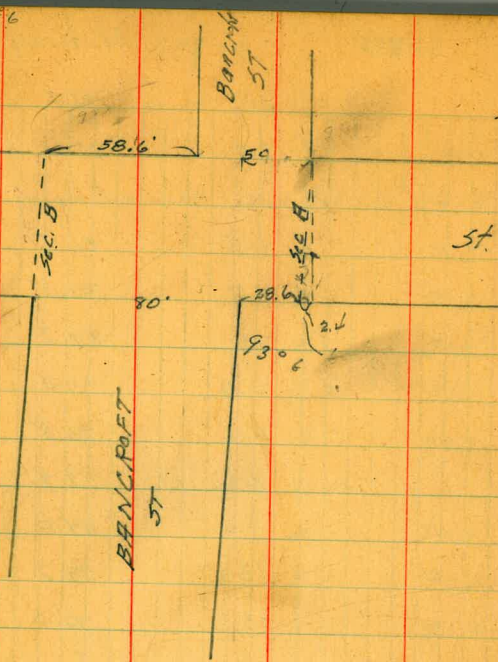 6
Bancroft
ST
58.6'
50
Sec. B
Sec B
St.
80'
28.6
2.4
93° 6
BANCROFT
ST